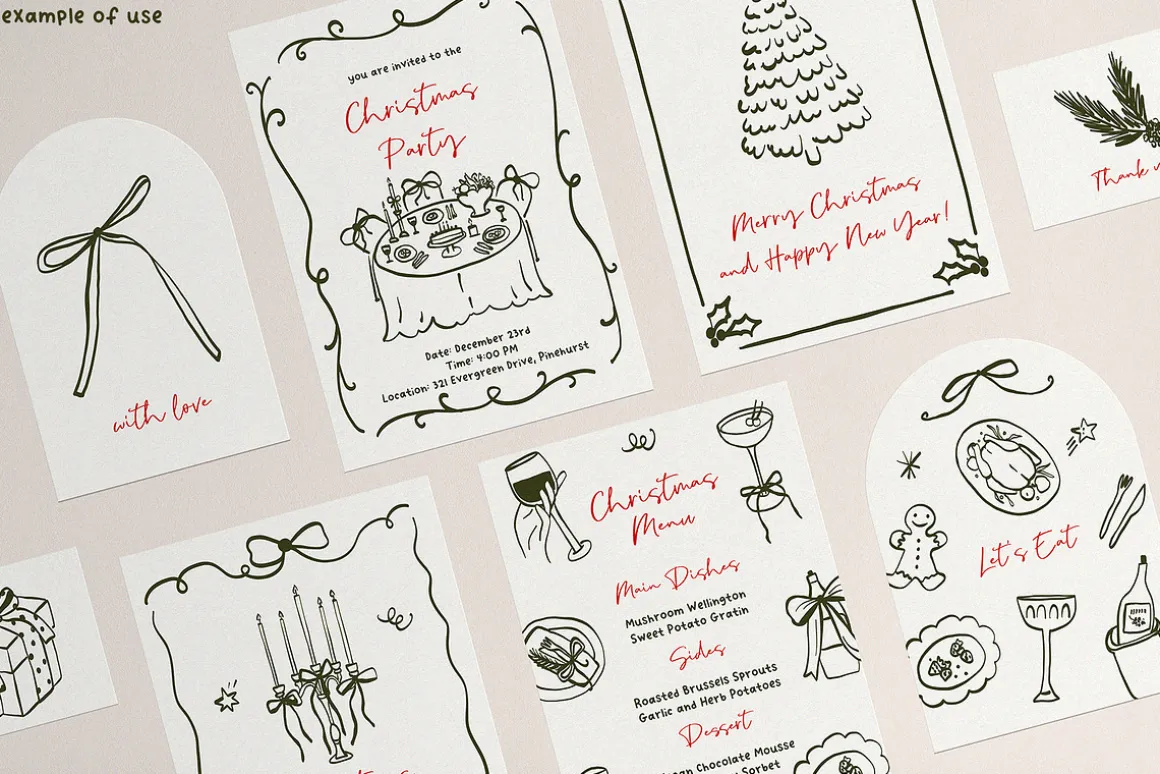 example of use
you are invited to the
Christmas
Party
Date: December 23rd
Time: 4:00 PM
Location: 321 Evergreen Drive, Pinehurst
Merry Christmas
and Happy New Year!
Thank
with love
Christmas
Menu
Main Dishes
Mushroom Wellington
Sweet Potato Gratin
Sides
Roasted Brussels Sprouts
Garlic and Herb Potatoes
Dessert
Chocolate Mousse
Sorbet
Let's Eat